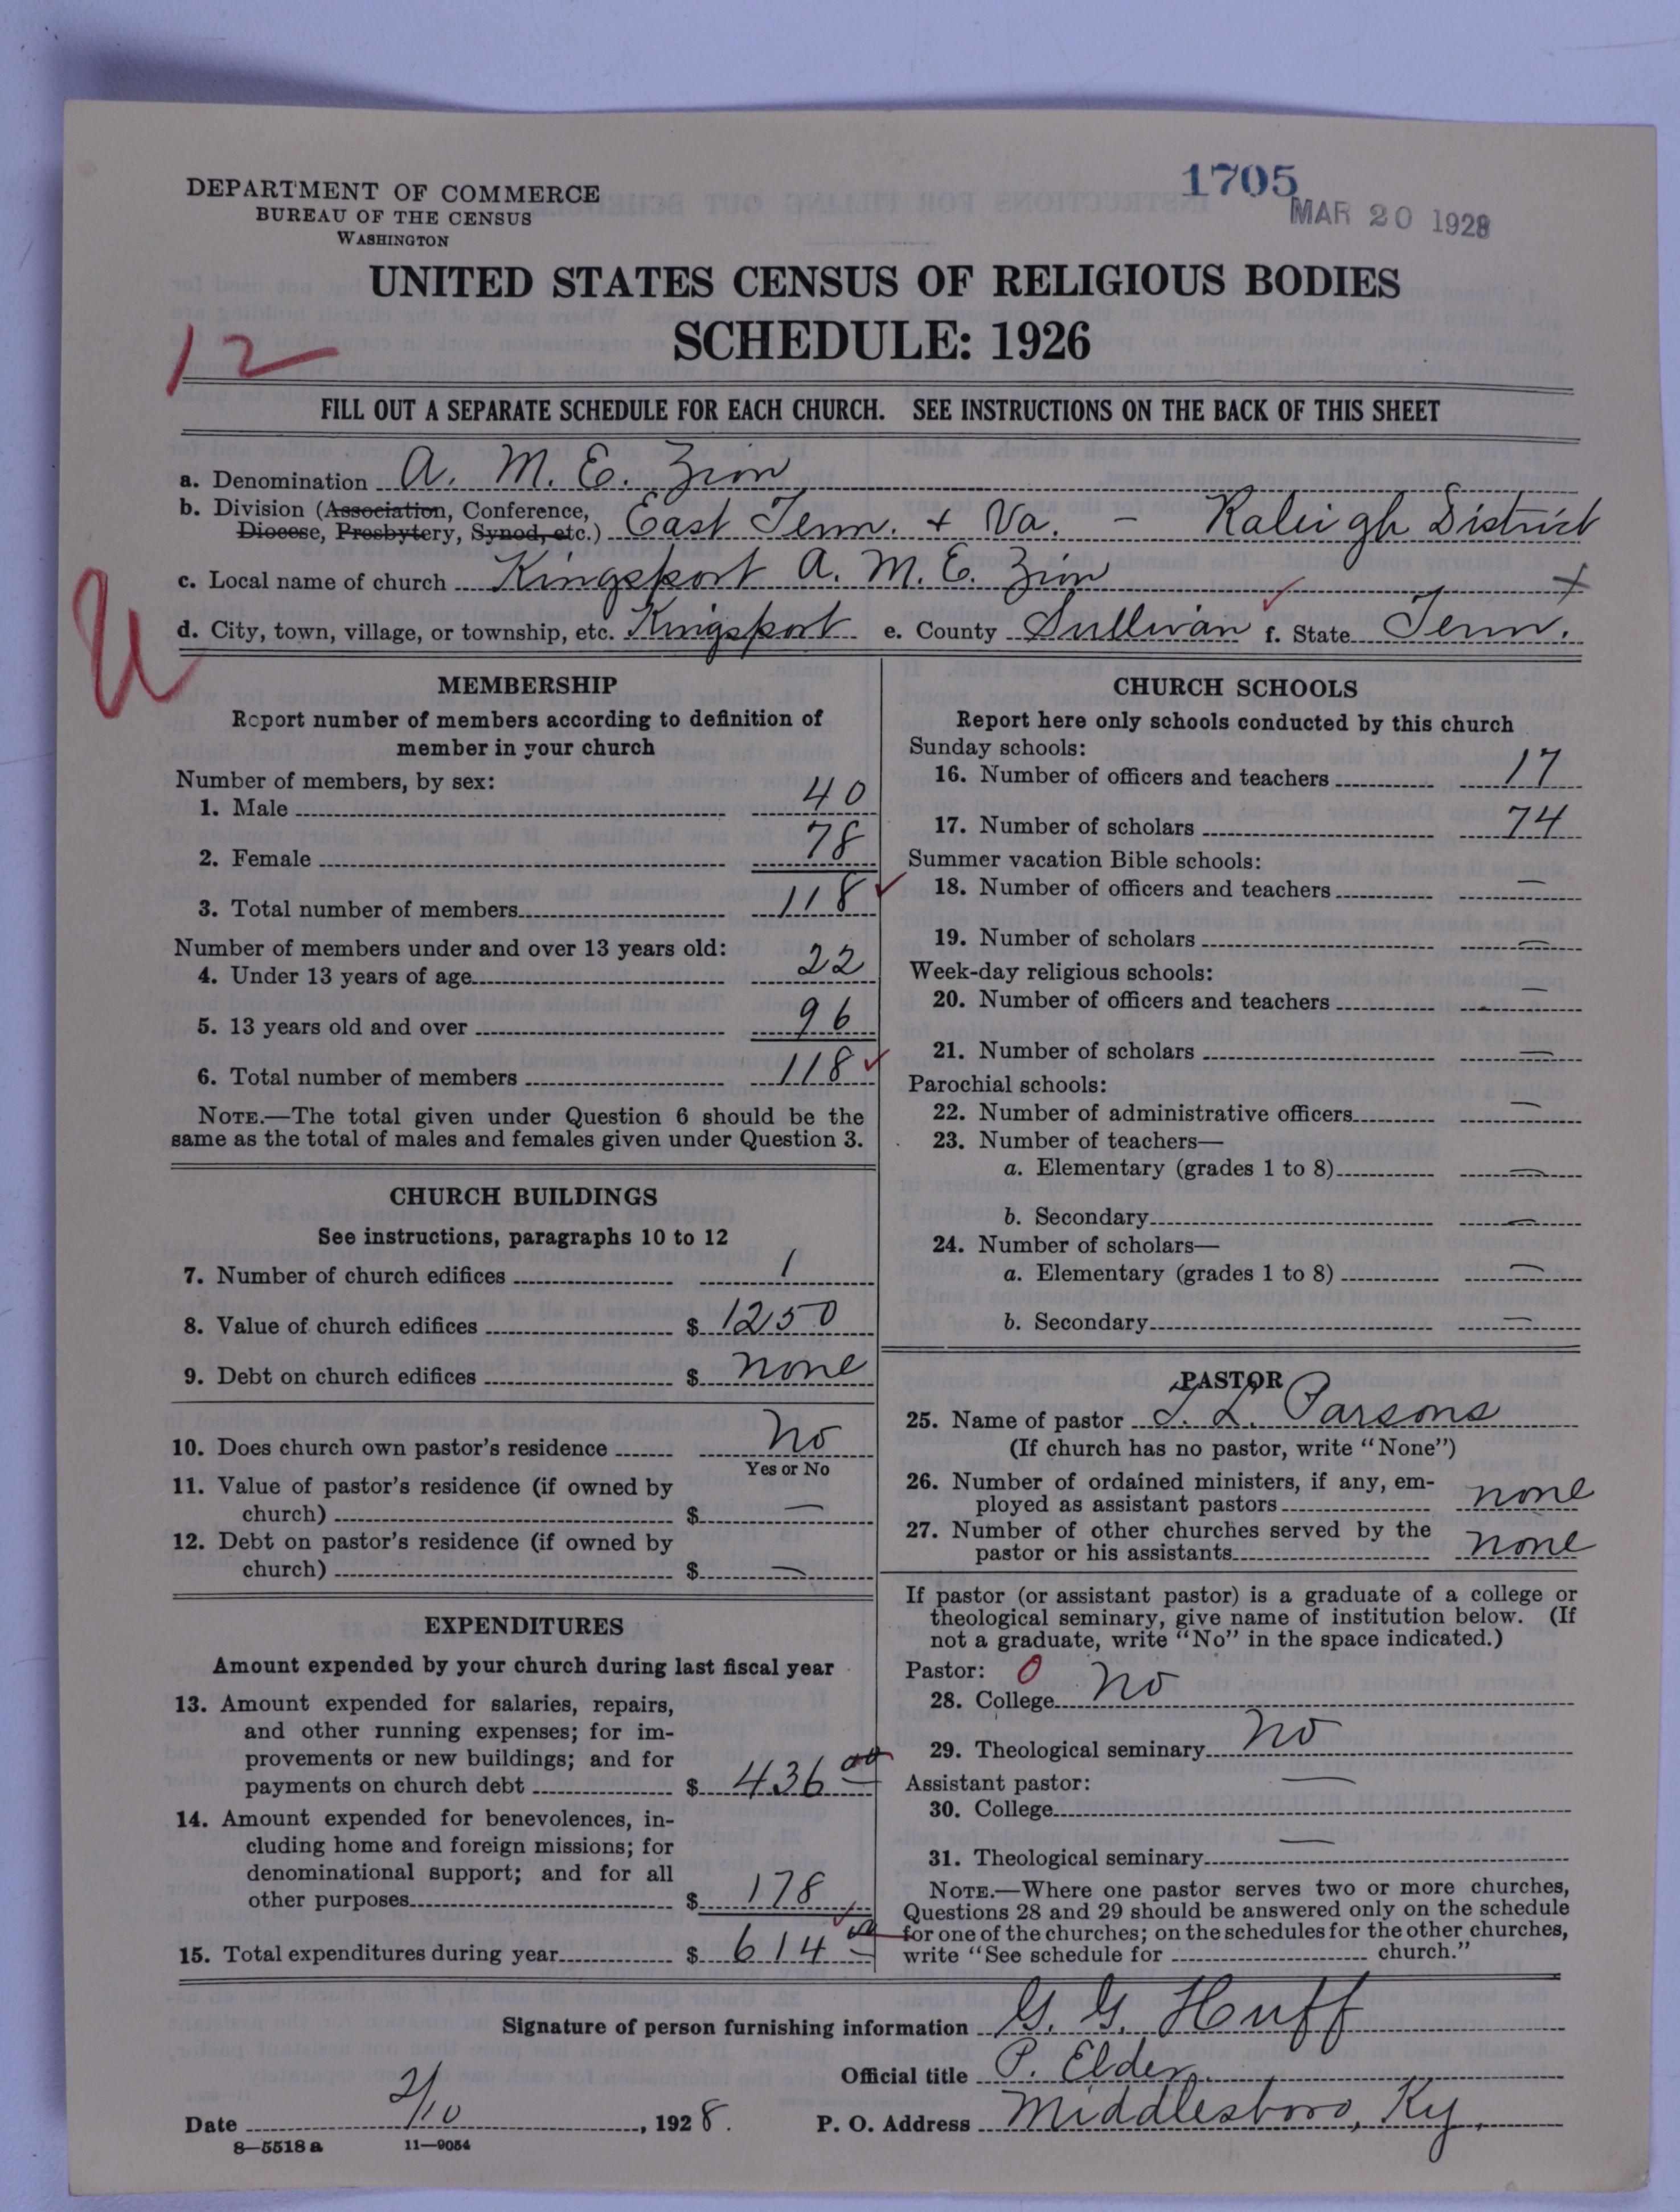 1705
MAR 20 1928
DEPARTMENT OF COMMERCE
BUREAU OF THE CENSUS
WASHINGTON
UNITED STATES CENSUS OF RELIGIOUS BODIES
SCHEDULE: 1926
12
FILL OUT A SEPARATE SCHEDULE FOR EACH CHURCH. SEE INSTRUCTIONS ON THE BACK OF THIS SHEET
a. Denomination A. M. E. Zion
b. Division (Association, Conference,
Diocese, Presbytery, Synod, etc.) East Tenn. + Va. - Raleigh District
c. Local name of church Kingsport A. M. E. Zion +
U
d. City, town, village, or township, etc. Kingsport e. County Sullivan f. State Tenn.
MEMBERSHIP
Report number of members according to definition of
member in your church
Number of members, by sex:
1. Male 40
2. Female 78
3. Total number of members 118
Number of members under and over 13 years old:
4. Under 13 years of age 22
5. 13 years old and over 96
6. Total number of members 118
NOTE.—The total given under Question 6 should be the
same as the total of males and females given under Question 3.
CHURCH BUILDINGS
See instructions, paragraphs 10 to 12
7. Number of church edifices 1
8. Value of church edifices $ 1250
9. Debt on church edifices $ none
10. Does church own pastor's residence No
Yes or No
11. Value of pastor's residence (if owned by
church) $ —
12. Debt on pastor's residence (if owned by
church) $ —
EXPENDITURES
Amount expended by your church during last fiscal year
13. Amount expended for salaries, repairs,
and other running expenses; for im-
provements or new buildings; and for
payments on church debt $ 436 00
14. Amount expended for benevolences, in-
cluding home and foreign missions; for
denominational support; and for all
other purposes $ 178
15. Total expenditures during year $ 614 00
CHURCH SCHOOLS
Report here only schools conducted by this church
Sunday schools:
16. Number of officers and teachers 17
17. Number of scholars 74
Summer vacation Bible schools:
18. Number of officers and teachers —
19. Number of scholars —
Week-day religious schools:
20. Number of officers and teachers —
21. Number of scholars —
Parochial schools:
22. Number of administrative officers —
23. Number of teachers—
a. Elementary (grades 1 to 8) —
b. Secondary —
24. Number of scholars—
a. Elementary (grades 1 to 8) —
b. Secondary —
PASTOR
25. Name of pastor L. Parsons
(If church has no pastor, write "None")
26. Number of ordained ministers, if any, em-
ployed as assistant pastors none
27. Number of other churches served by the
pastor or his assistants none
If pastor (or assistant pastor) is a graduate of a college or
theological seminary, give name of institution below. (If
not a graduate, write "No" in the space indicated.)
Pastor: 0
28. College No
29. Theological seminary No
Assistant pastor:
30. College —
31. Theological seminary —
NOTE.—Where one pastor serves two or more churches,
Questions 28 and 29 should be answered only on the schedule
for one of the churches; on the schedules for the other churches,
write "See schedule for church."
Signature of person furnishing information G. G. Huff
Official title P. Elder
Date 2/10, 1928. P. O. Address Middlesboro, Ky.
8—5518 a 11—9054